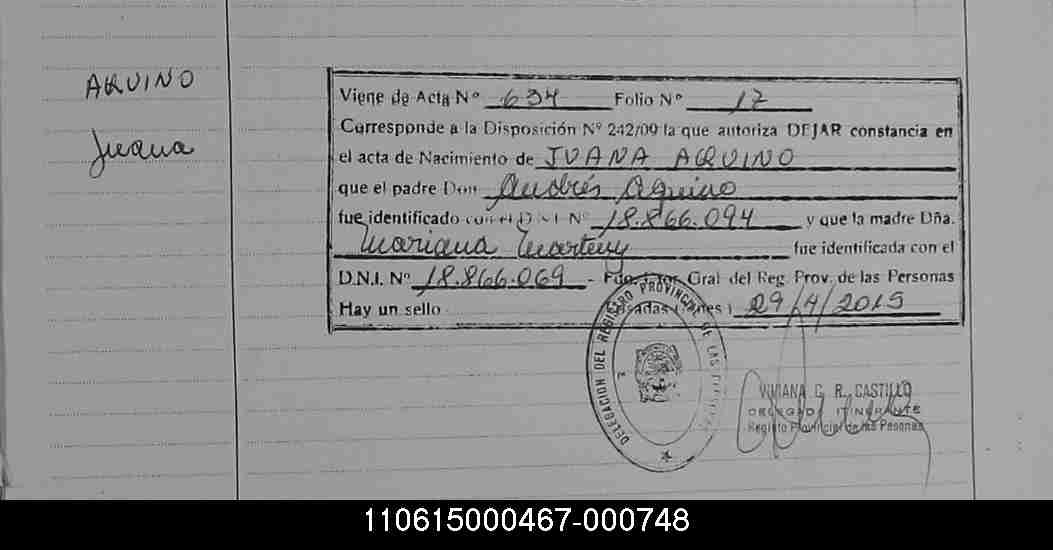 AQUINO
Juana
Viene de Acta Nº 634 Folio Nº 17
Corresponde a la Disposición Nº 242/09 la que autoriza DEJAR constancia en
el acta de Nacimiento de JUANA AQUINO
que el padre Don Andrés Aquino
fue identificado con el D N I Nº 18.866.094 y que la madre Dña.
Mariana fue identificada con el
D.N.I. Nº 18.866.069 - Gral del Reg. Prov. de las Personas
Hay un sello 29/4/2015
DELEGACION DEL REGISTRO PROVINCIAL DE LAS
VIVIANA C. R. CASTILLO
DELEGADA ITINERANTE
Registro Provincial de las Personas
110615000467-000748